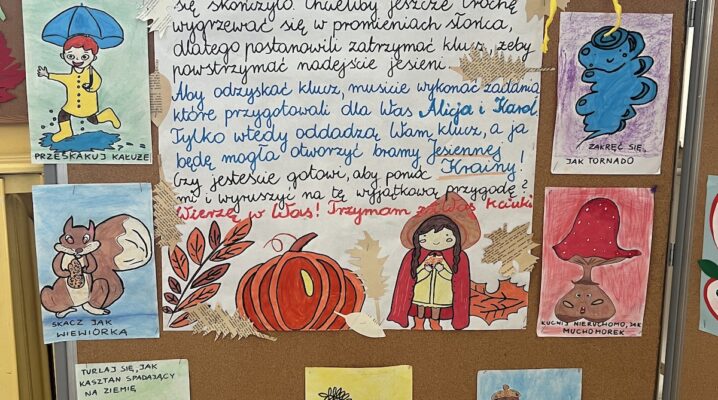 się skończyło. Chcieliby jeszcze trochę
wygrzewać się w promieniach słońca,
dlatego postanowili zatrzymać klucz, żeby
powstrzymać nadejście jesieni.
Aby odzyskać klucz, musicie wykonać zadania,
które przygotowali dla Was Alicja i Karol.
Tylko wtedy oddadzą Wam klucz, a ja
będę mogła otworzyć bramy Jesiennej
Krainy!
Czy jesteście gotowi, aby pomóc
mi i wyruszyć na tę wyjątkową przygodę?
Wierzę w Was! Trzymam za Was kciuki
PRZESKAKUJ KAŁUŻE
ZAKRĘĆ SIĘ,
JAK TORNADO
SKACZ JAK
WIEWIÓRKA
KUCNIJ NIERUCHOMO, JAK
MUCHOMOREK
TURLAJ SIĘ, JAK
KASZTAN SPADAJĄCY
NA ZIEMIĘ